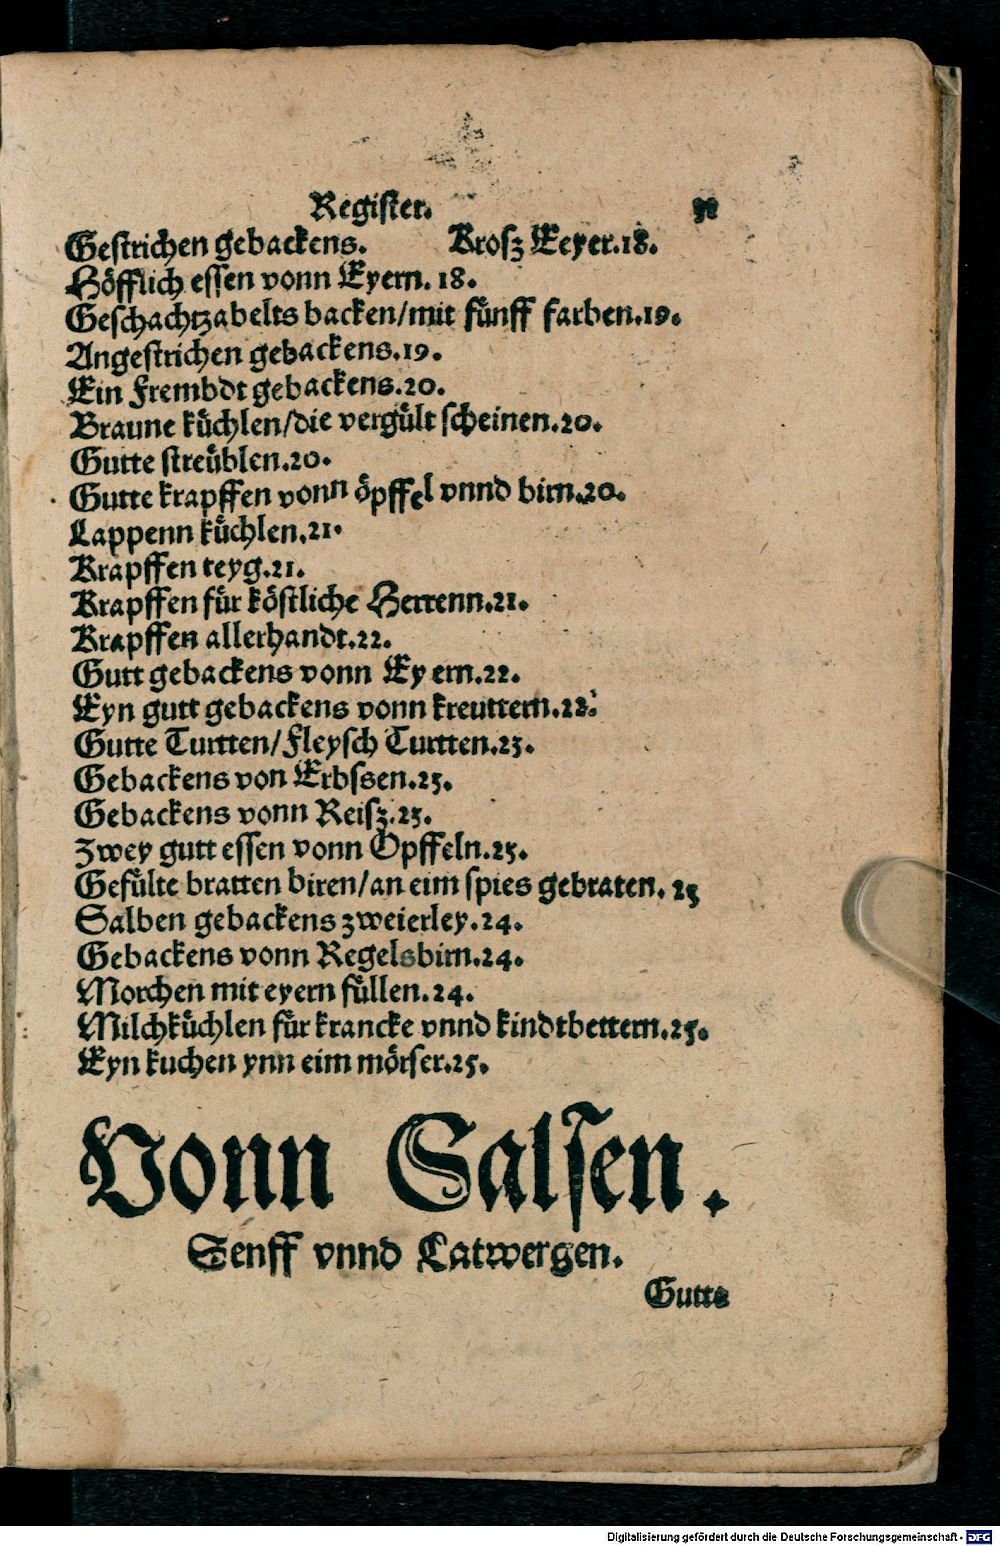 Register.
Gestrichen gebackens. Krosz Eeyer.18.
Höfflich essen vonn Eyern. 18.
Geschachtzabelts backen/mit fünff farben.19.
Angestrichen gebackens.19.
Ein frembdt gebackens.20.
Braune küchlen/die vergült scheinen.20.
Gutte streüblen.20.
Gutte krapffen vonn öpffel vnnd birn.20.
Lappenn küchlen.21.
Krapffen teyg.21.
Krapffen für köstliche Herrenn.21.
Krapffen allerhandt.22.
Gutt gebackens vonn Ey ern.22.
Eyn gutt gebackens vonn kreuttern.22.
Gutte Turtten/Fleysch Turtten.23.
Gebackens von Erbssen.23.
Gebackens vonn Reisz.23.
Zwey gutt essen vonn Opffeln.23.
Gefülte bratten biren/an eim spies gebraten. 23
Salben gebackens zweierley.24.
Gebackens vonn Regelsbirn.24.
Morchen mit eyern füllen.24.
Milchküchlen für krancke vnnd kindtbettern.25.
Eyn kuchen ynn eim mörser.25.
Vonn Salsen.
Senff vnnd Latwergen.
Gutte
Digitalisierung gefördert durch die Deutsche Forschungsgemeinschaft - DFG